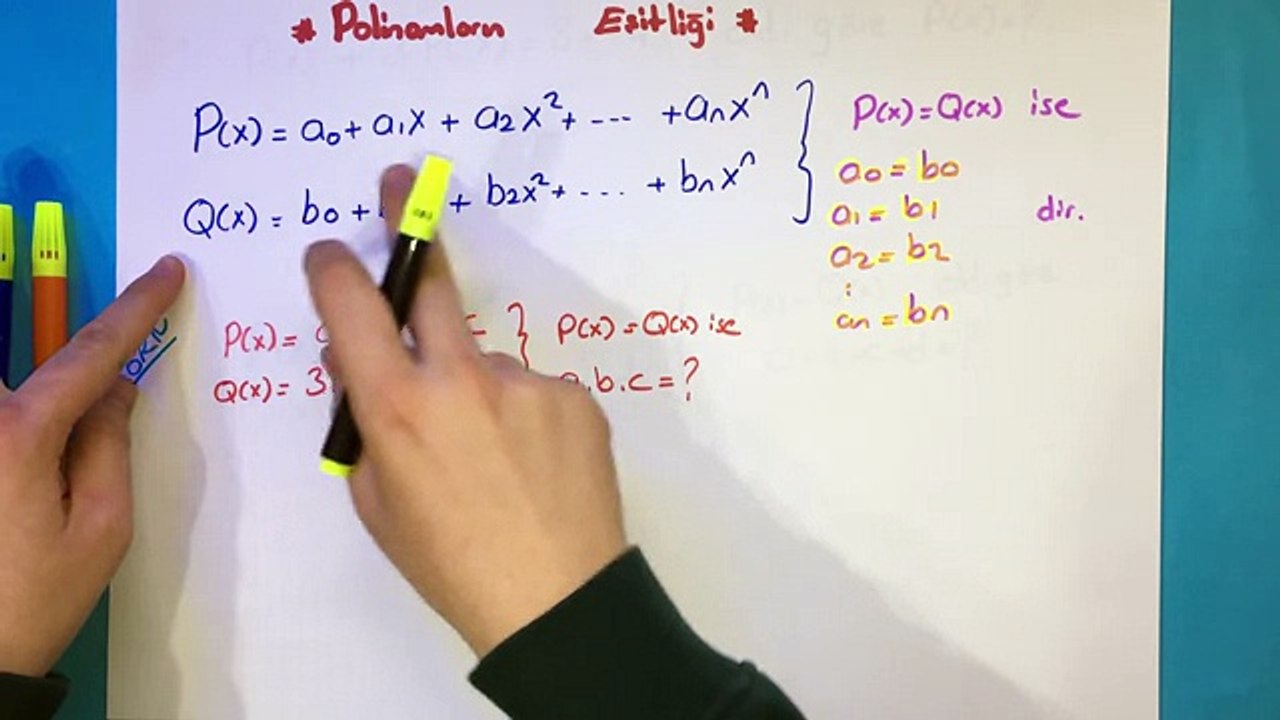 # Polinomların Eşitliği #
P(x) = a₀ + a₁x + a₂x² + --- + aₙxⁿ
Q(x) = b₀ + + b₂x² + - ... + bₙxⁿ
P(x) = Q(x) ise
a₀ = b₀
a₁ = b₁ dir.
a₂ = b₂
:
aₙ = bₙ
P(x) =
Q(x) = 3
P(x) = Q(x) ise
.b.c = ?